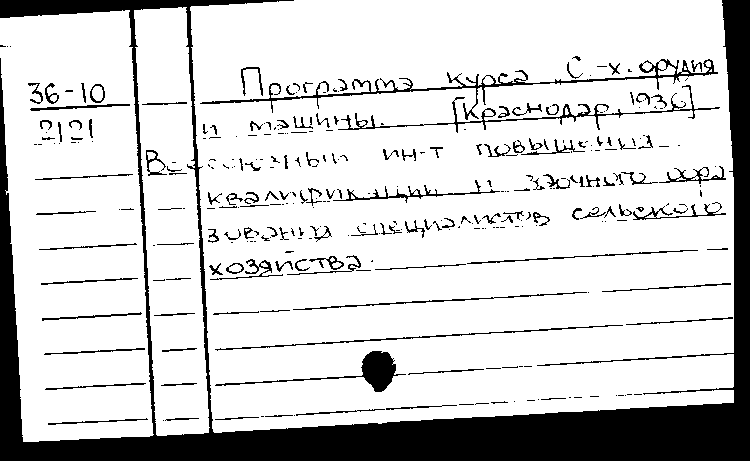 36-10
2121
Программа курса „С.-х. орудия
и машины. [Краснодар, 1936]
Всесоюзный ин-т повышения
квалификации и заочного обра-
зования специалистов сельского
хозяйства.